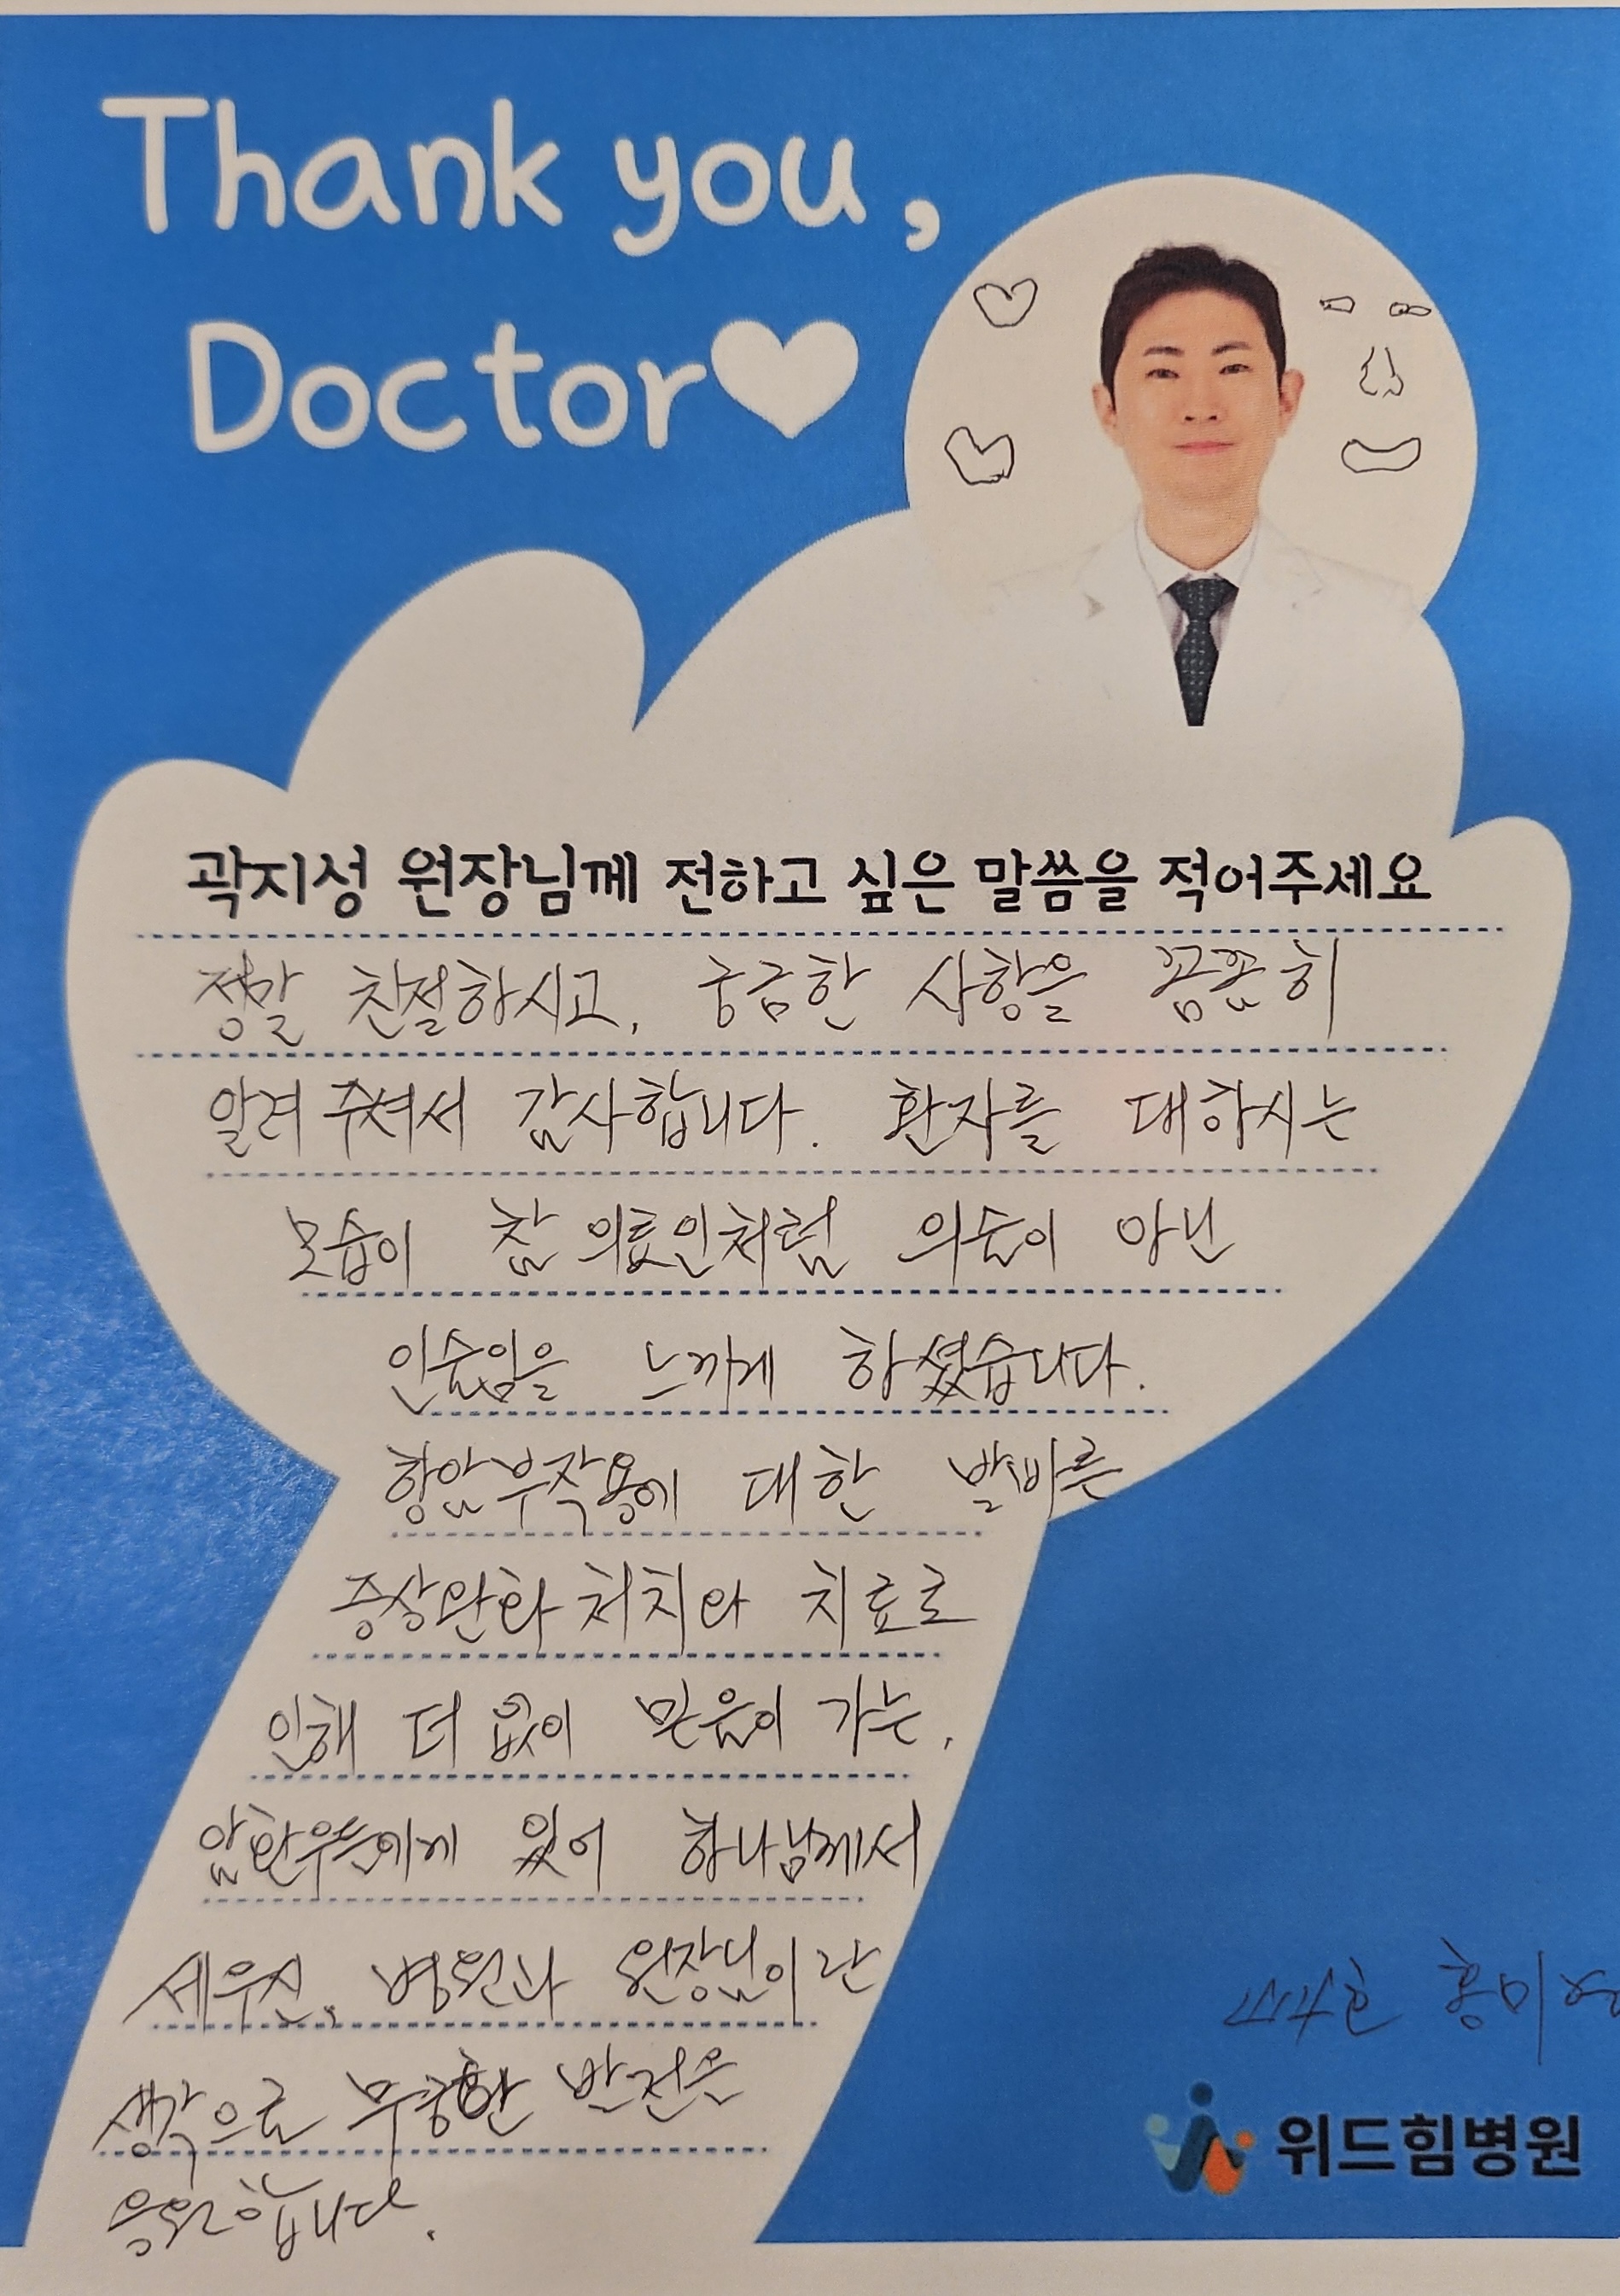 Thank you,
Doctor
곽지성 원장님께 전하고 싶은 말씀을 적어주세요
정말 친절하시고, 궁금한 사항을 꼼꼼히
알려 주셔서 감사합니다. 환자를 대하시는
모습이 참 의료인처럼 의술이 아닌
인술임을 느끼게 하셨습니다.
항암부작용에 대한 발빠른
증상완화 처치와 치료로
인해 더 없이 믿음이 가는,
암환우들에게 있어 하나님께서
세우신, 병원과 원장님이란
생각으로 무궁한 발전을
응원합니다.
홍미
위드힘병원